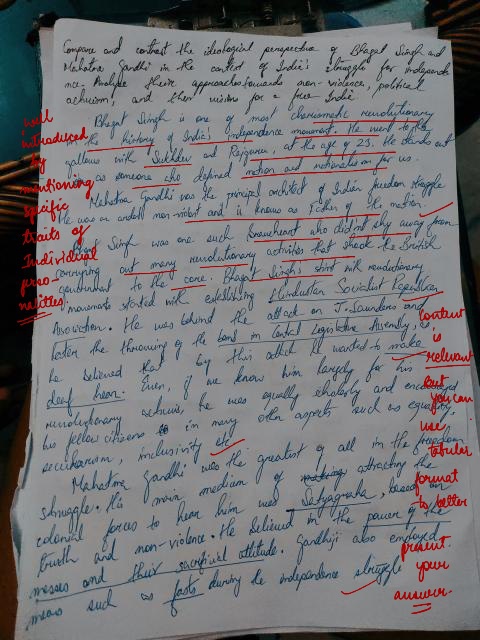 Compare and contrast the ideological perspective of Bhagat Singh and
Mahatma Gandhi in the context of India's struggle for independe
nce. Analyse their approaches towards non-violence, political
activism, and their vision for a free India.
Bhagat Singh is one of most charismatic revolutionary
in the history of India's Independence movement. He went to the
gallows with Sukhdev and Rajguru, at the age of 23. He stands out
as someone who defined nation and nationalism for us.
Mahatma Gandhi was the principal architect of Indian freedom struggle
He was an ardent non-violent and is known as Father of the nation.
Bhagat Singh was one such Braveheart who didn't shy away from
carrying out many revolutionary activities that shook the British
government to the core. Bhagat Singh's stint with revolutionary
movements started with establishing Hindustan Socialist Republican
Association. He was behind the attack on J. Saunders and
later the throwing of the bomb in Central Legislative Assembly, as
he believed that by this attack he wanted to make
deaf hear. Even if we know him largely for his
revolutionary activies, he was equally scholarly and encouraged
his fellow citizens in many other aspects such as equality,
secularism, inclusivity etc
Mahatma Gandhi was the greatest of all in the freedom
struggle. His main medium of attracting the
colonial forces to hear him was Satyagraha, based on
truth and non-violence. He believed in the power of the
masses and their sacrificial attitude. Gandhiji also employed
means such as fasts during the independence struggle
well
introduced
by
mentioning
specific
traits of
Individual
perso
nalities
Content
is
relevant
but
you can
use
tabular
format
to better
present
your
answer.